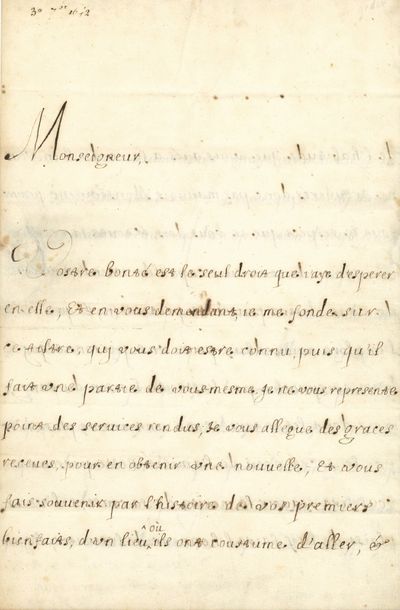 30 7bre 1642
Monseigneur,
Vostre bonté est le seul droit que i'aye d'esperer
en elle, Et en vous demendant, ie me fonde sur
ce tiltre, qui vous doit estre connu, puis qu'il
fait vne partie de vous mesme, Je ne vous represente
point des seruices rendus, Je vous allegue des graces
receues, pour en obtenir vne nouuelle, Et vous
fais souuenir par l'histoire de vos premiers
bienfaits, d'vn lieu, où ils ont coustume d'aller, &